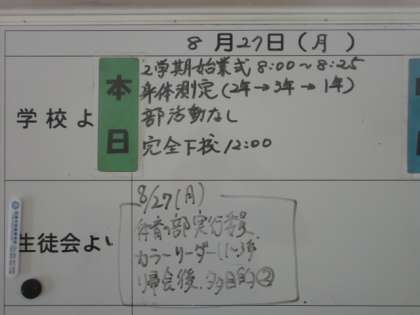 8月27日(月)
本日
2学期始業式 8:00〜8:25
身体測定(2年→3年→1年)
学校よ
部活動なし
完全下校 12:00
8/27(月)
体育の部実行委員
生徒会よ
カラーリーダー
帰会後、多目的②